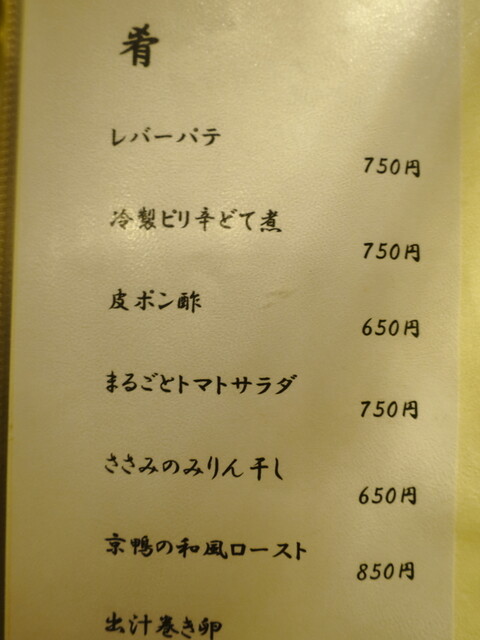 肴
レバーパテ
750円
冷製ピリ辛どて煮
750円
皮ポン酢
650円
まるごとトマトサラダ
750円
ささみのみりん干し
650円
京鴨の和風ロースト
850円
出汁巻き卵